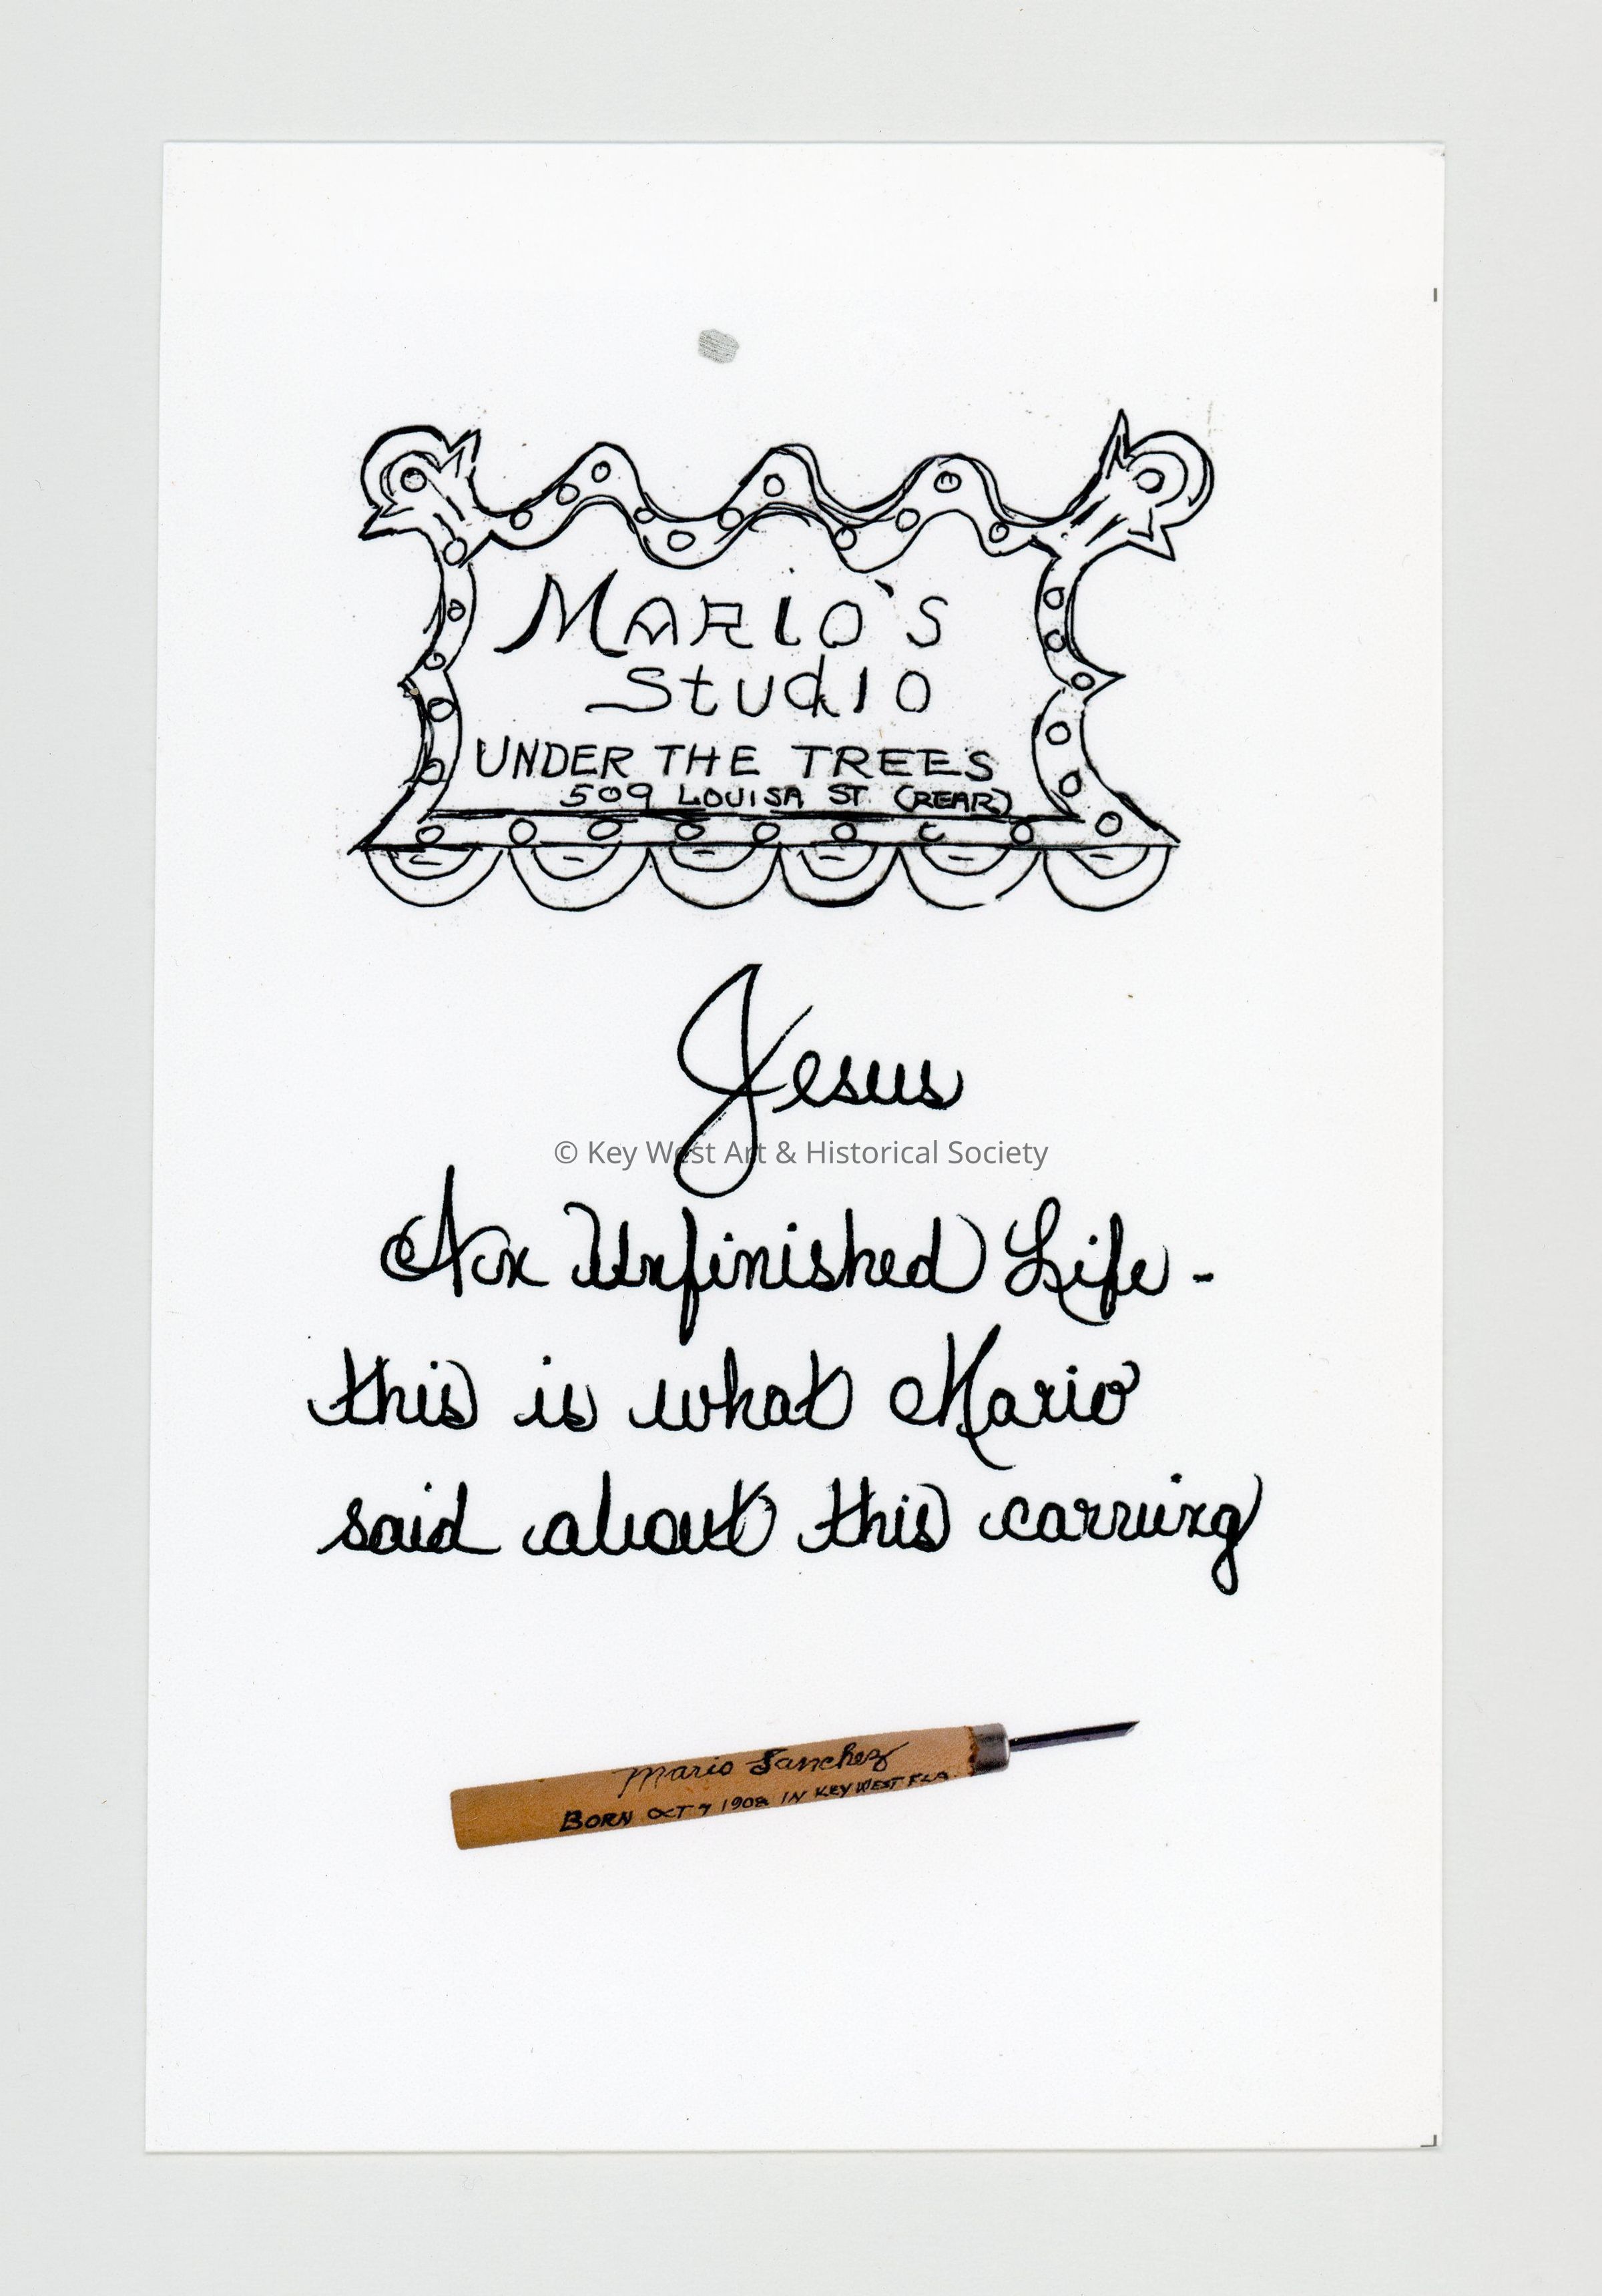 Mario's
Studio
UNDER THE TREES
509 LOUISA ST. (REAR)
Jesus
© Key West Art & Historical Society
An Unfinished Life -
this is what Mario
said about this carving
Mario Sanchez
BORN OCT 7 1908 IN KEY WEST FLA.